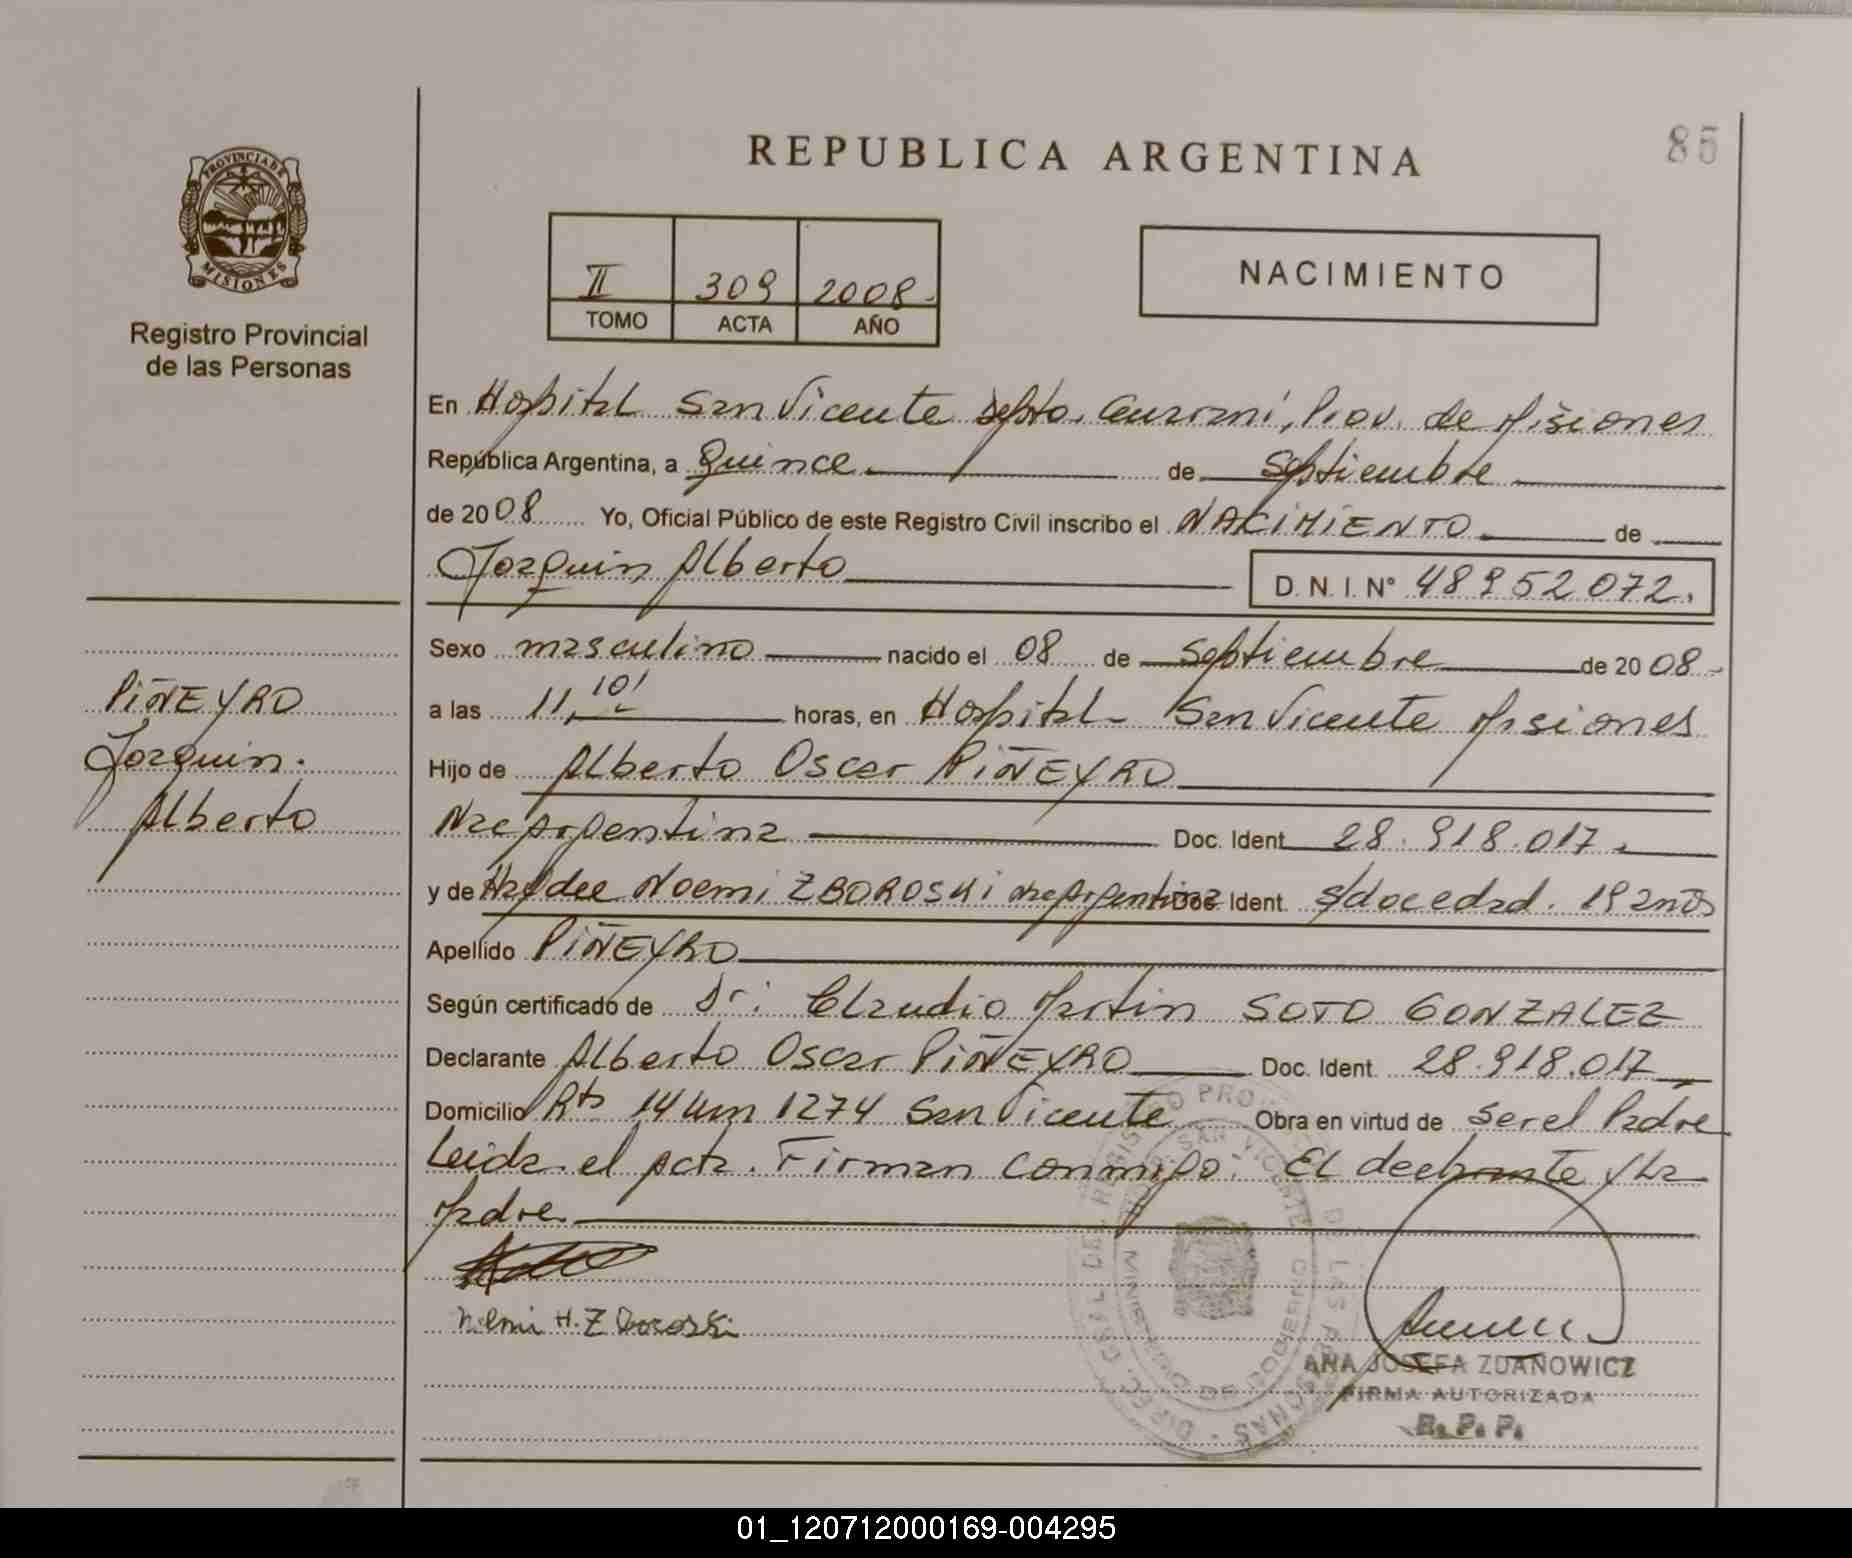 85
REPUBLICA ARGENTINA
PROVINCIA DE
MISIONES
Registro Provincial
de las Personas
II 309 2008.
TOMO ACTA AÑO
NACIMIENTO
En Hospital San Vicente Dpto. Guaraní, Prov. de Misiones
República Argentina, a Quince de Septiembre
de 2008 Yo, Oficial Público de este Registro Civil inscribo el NACIMIENTO de
Joaquin Alberto D. N. I. N° 48952072.
Sexo masculino nacido el 08 de Septiembre de 2008
a las 11,10' horas, en Hospital San Vicente Misiones
Hijo de Alberto Oscar PIÑEYRO
Nac Argentina Doc. Ident 28.918.017.
y de Haydee Noemi ZBOROSKI nac Argentina Doc. Ident. s/doc edad. 19 años
Apellido PIÑEYRO
Según certificado de Dr: Claudio Martin SOTO GONZALEZ
Declarante Alberto Oscar PIÑEYRO Doc. Ident. 28.918.017
Domicilio Rta 14 km 1274 San Vicente Obra en virtud de ser el Padre
Leida el Acta. Firman conmigo. El declarante y La
Madre
PIÑEYRO
Joaquin.
Alberto
H. Zboroski
ANA JOSEFA ZDANOWICZ
FIRMA AUTORIZADA
R. P. P.
01_120712000169-004295